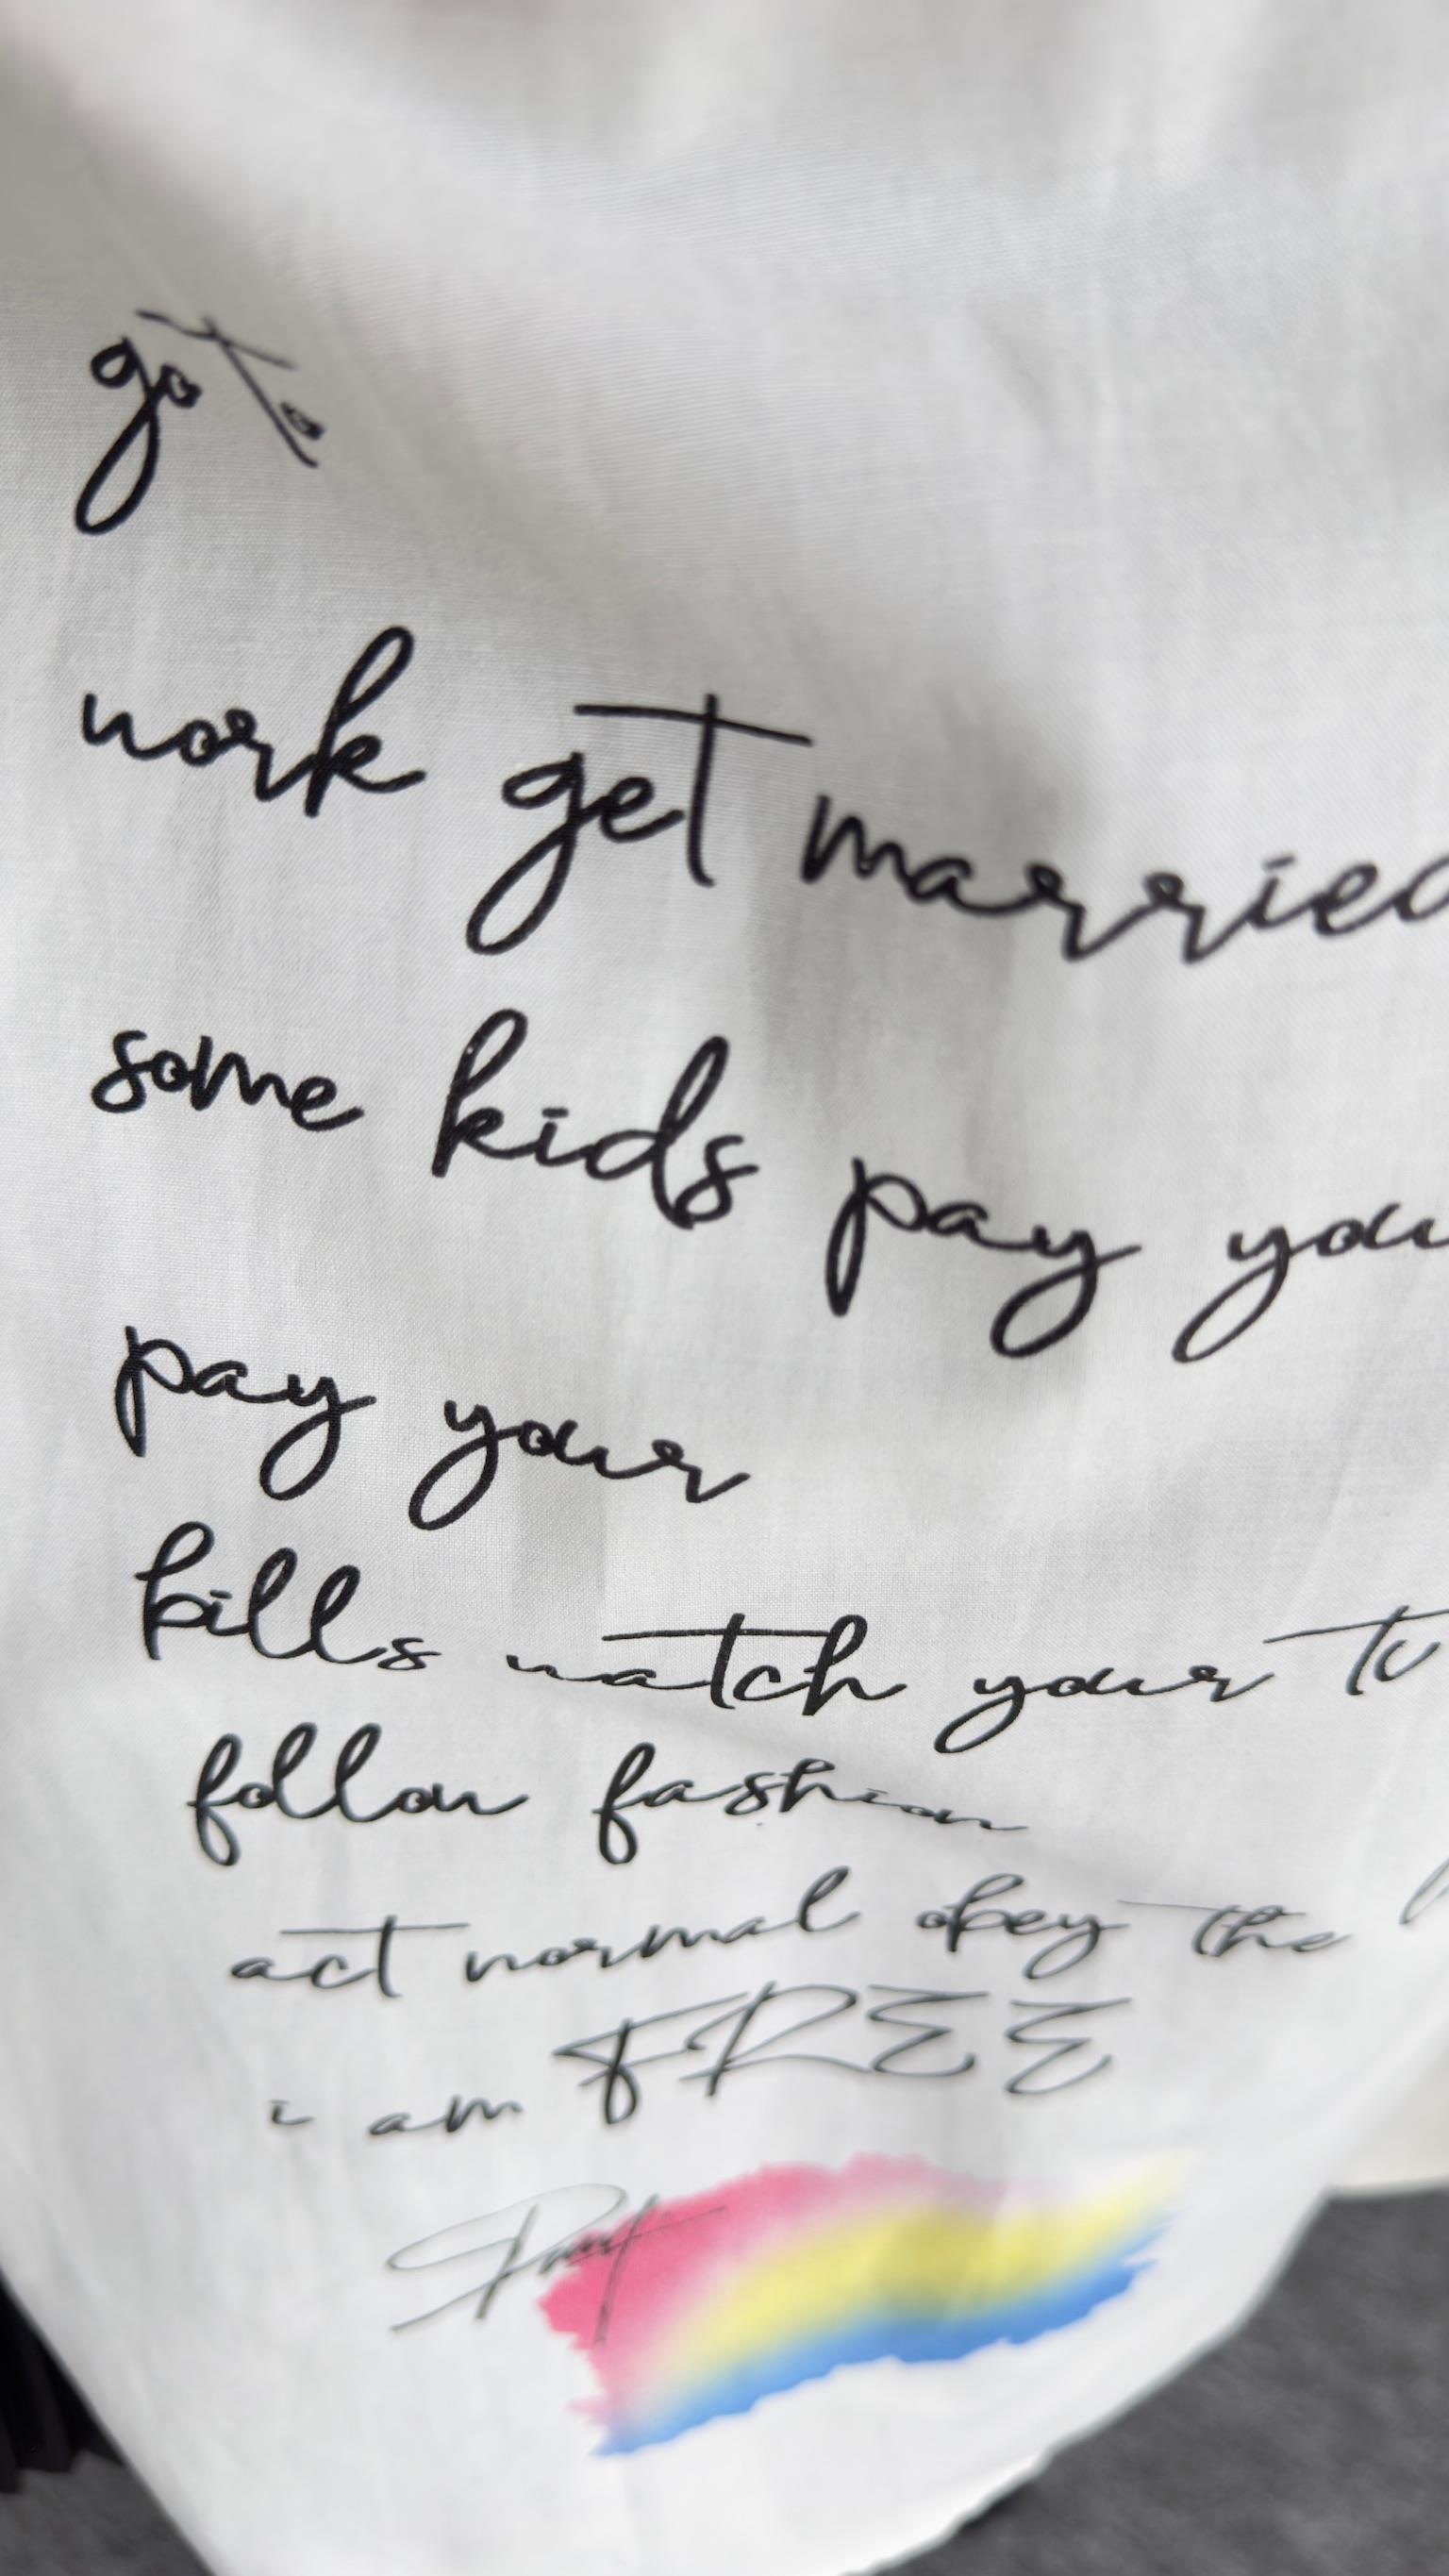 go to
work get married
some kids pay you
pay your
bills watch your tv
follow fashion
act normal obey the
i am FREE